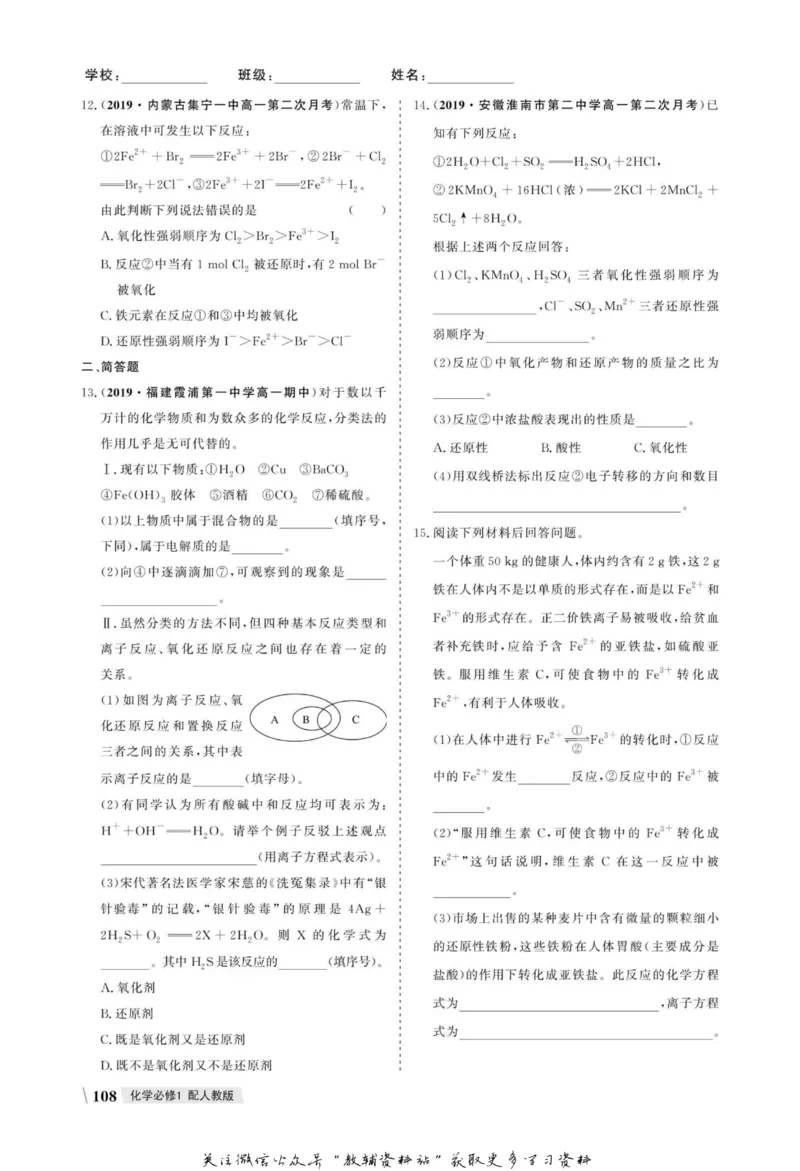 学校:____________ 班级:____________ 姓名:____________
12.(2019·内蒙古集宁一中高一第二次月考)常温下,
在溶液中可发生以下反应:
①2Fe²⁺+Br₂══2Fe³⁺+2Br⁻,②2Br⁻+Cl₂
══Br₂+2Cl⁻,③2Fe³⁺+2I⁻══2Fe²⁺+I₂。
由此判断下列说法错误的是 ( )
A.氧化性强弱顺序为Cl₂>Br₂>Fe³⁺>I₂
B.反应②中当有1 mol Cl₂被还原时,有2 mol Br⁻
被氧化
C.铁元素在反应①和③中均被氧化
D.还原性强弱顺序为I⁻>Fe²⁺>Br⁻>Cl⁻
二、简答题
13.(2019·福建霞浦第一中学高一期中)对于数以千
万计的化学物质和为数众多的化学反应,分类法的
作用几乎是无可代替的。
Ⅰ.现有以下物质:①H₂O ②Cu ③BaCO₃
④Fe(OH)₃胶体 ⑤酒精 ⑥CO₂ ⑦稀硫酸。
(1)以上物质中属于混合物的是________(填序号,
下同),属于电解质的是________。
(2)向④中逐滴滴加⑦,可观察到的现象是______
__________________。
Ⅱ.虽然分类的方法不同,但四种基本反应类型和
离子反应、氧化还原反应之间也存在着一定的
关系。
(1)如图为离子反应、氧
化还原反应和置换反应
三者之间的关系,其中表
示离子反应的是________(填字母)。
A B C
(2)有同学认为所有酸碱中和反应均可表示为:
H⁺+OH⁻══H₂O。请举个例子反驳上述观点
________________________(用离子方程式表示)。
(3)宋代著名法医学家宋慈的《洗冤集录》中有“银
针验毒”的记载,“银针验毒”的原理是4Ag+
2H₂S+O₂══2X+2H₂O。则X的化学式为
________。其中H₂S是该反应的________(填序号)。
A.氧化剂
B.还原剂
C.既是氧化剂又是还原剂
D.既不是氧化剂又不是还原剂
14.(2019·安徽淮南市第二中学高一第二次月考)已
知有下列反应:
①2H₂O+Cl₂+SO₂══H₂SO₄+2HCl,
②2KMnO₄+16HCl(浓)══2KCl+2MnCl₂+
5Cl₂↑+8H₂O。
根据上述两个反应回答:
(1)Cl₂、KMnO₄、H₂SO₄三者氧化性强弱顺序为
________________,Cl⁻、SO₂、Mn²⁺三者还原性强
弱顺序为________________。
(2)反应①中氧化产物和还原产物的质量之比为
________。
(3)反应②中浓盐酸表现出的性质是________。
A.还原性 B.酸性 C.氧化性
(4)用双线桥法标出反应②电子转移的方向和数目
______________________________________。
15.阅读下列材料后回答问题。
一个体重50 kg的健康人,体内约含有2 g铁,这2 g
铁在人体内不是以单质的形式存在,而是以Fe²⁺和
Fe³⁺的形式存在。正二价铁离子易被吸收,给贫血
者补充铁时,应给予含Fe²⁺的亚铁盐,如硫酸亚
铁。服用维生素C,可使食物中的Fe³⁺转化成
Fe²⁺,有利于人体吸收。
(1)在人体中进行Fe²⁺ ①⇌② Fe³⁺的转化时,①反应
中的Fe²⁺发生________反应,②反应中的Fe³⁺被
________。
(2)“服用维生素C,可使食物中的Fe³⁺转化成
Fe²⁺”这句话说明,维生素C在这一反应中被
____________。
(3)市场上出售的某种麦片中含有微量的颗粒细小
的还原性铁粉,这些铁粉在人体胃酸(主要成分是
盐酸)的作用下转化成亚铁盐。此反应的化学方程
式为______________________________,离子方程
式为______________________________________。
108 化学必修1 配人教版
关注微信公众号“教辅资料站”获取更多学习资料